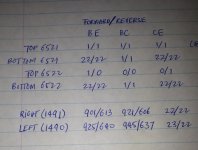 FORWARD/REVERSE
BE BC CE
TOP 6521 1/1 1/1 1/1
BOTTOM 6521 22/22 1/1 22/22
TOP 6522 1/0 0/0 1/1
BOTTOM 6522 22/22 1/1 22/22
RIGHT (1491) 901/613 921/606 22/22
LEFT (1490) 925/640 945/637 23/22